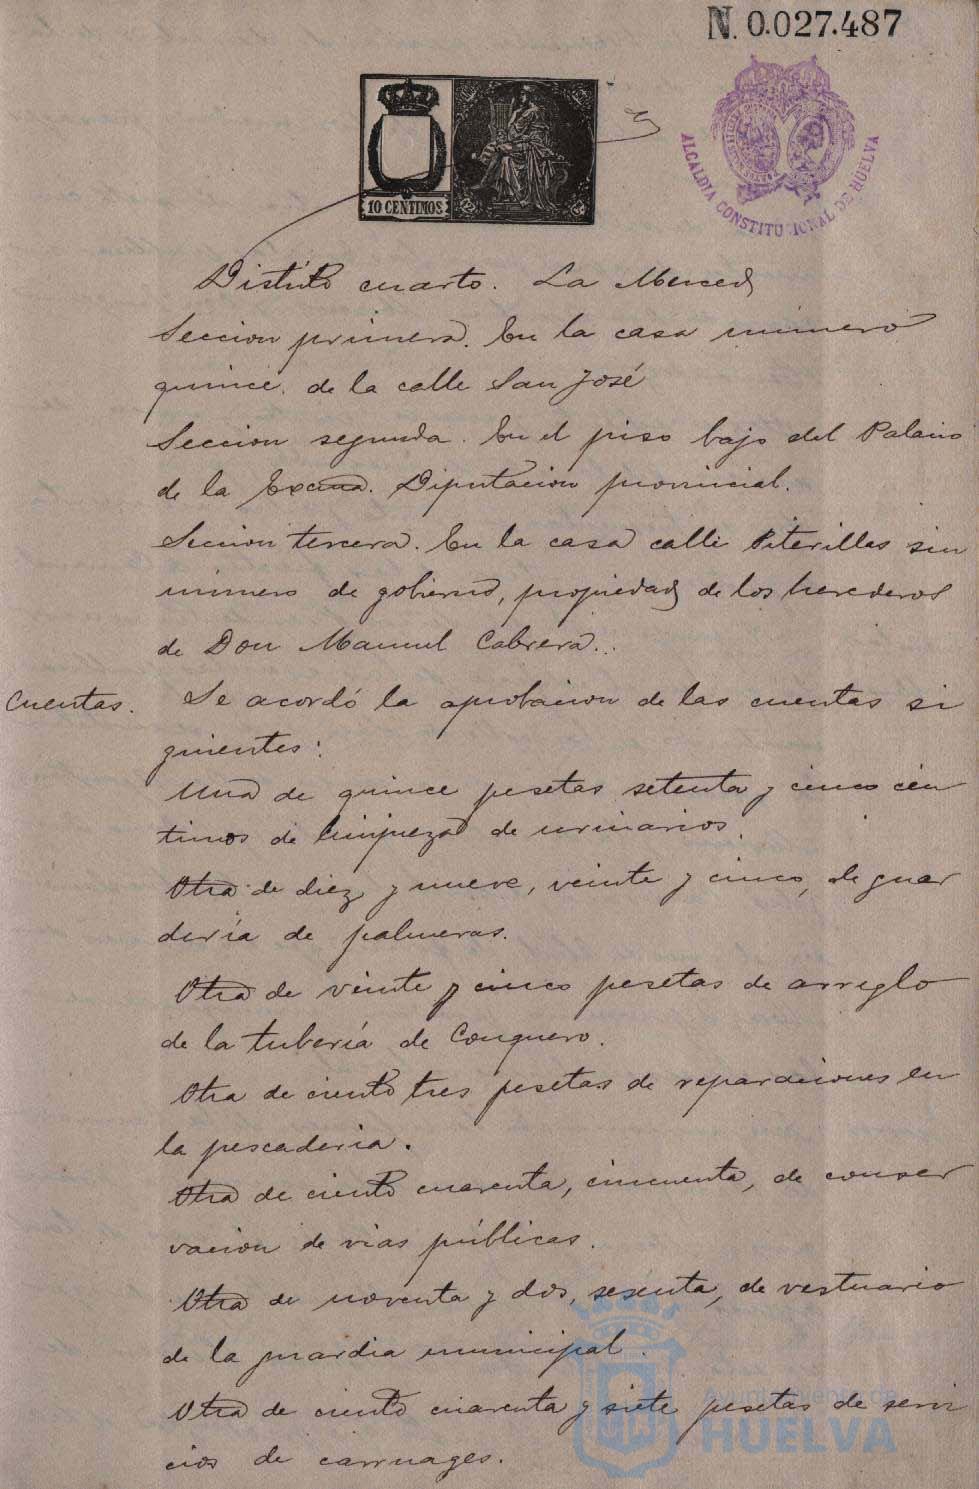 N. 0.027.487
10 CENTIMOS
ALCALDIA CONSTITUCIONAL DE HUELVA
Distrito cuarto. La Merced
Seccion primera. En la casa número
quince de la calle San José
Seccion segunda. En el piso bajo del Palacio
de la Excma. Diputacion provincial.
Seccion tercera. En la casa calle Piterillas sin
número de gobierno, propiedad de los herederos
de Don Manuel Cabrera..
Cuentas. Se acordó la aprobacion de las cuentas si
guientes:
Una de quince pesetas setenta y cinco cén
timos de limpieza de urinarios.
Otra de diez y nueve, veinte y cinco, de guar
dería de palmeras.
Otra de veinte y cinco pesetas de arreglo
de la tubería de Conquero.
Otra de ciento tres pesetas de reparaciones en
la pescaderia.
Otra de ciento cuarenta, cincuenta, de conser
vacion de vias públicas.
Otra de noventa y dos, sesenta, de vestuario
de la guardia municipal.
Otra de ciento cuarenta y siete pesetas de servi
cios de carruages.
Ayuntamiento de
HUELVA